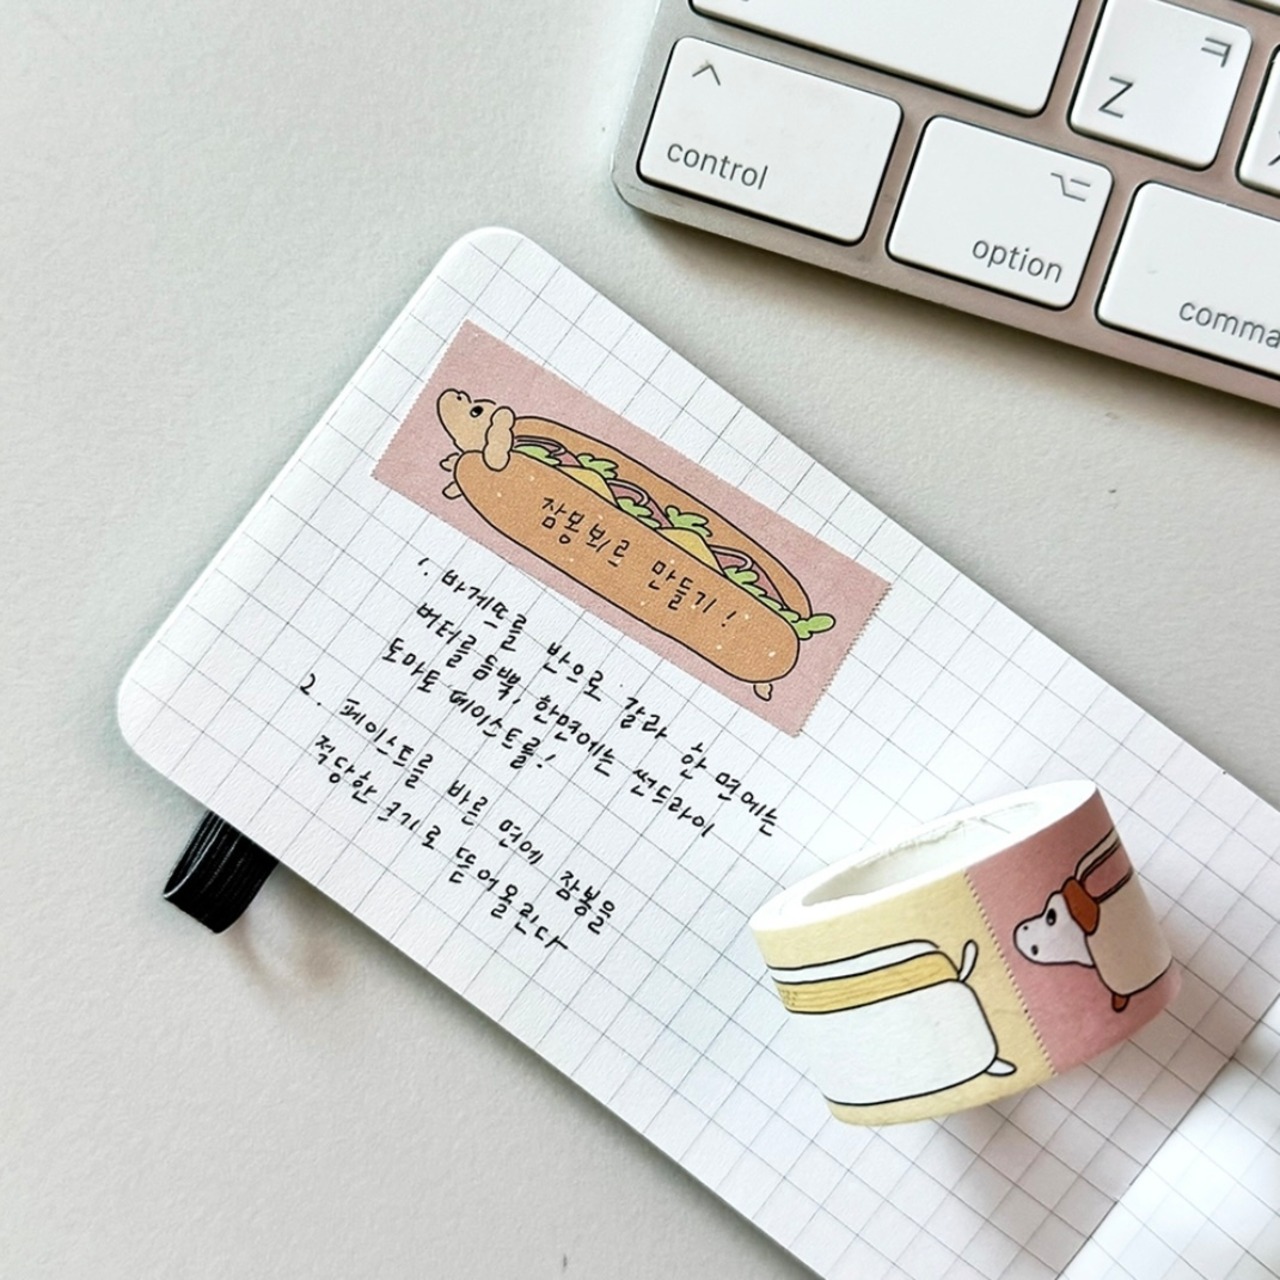 control
option
comma
Z
ㅋ
잠봉뵈르 만들기!
1. 바게뜨를 반으로 갈라 한 면에는
버터를 듬뿍, 한면에는 썬드라이
토마토 페이스트를!
2. 페이스트를 바른 면에 잠봉을
적당한 크기로 뜯어올린다